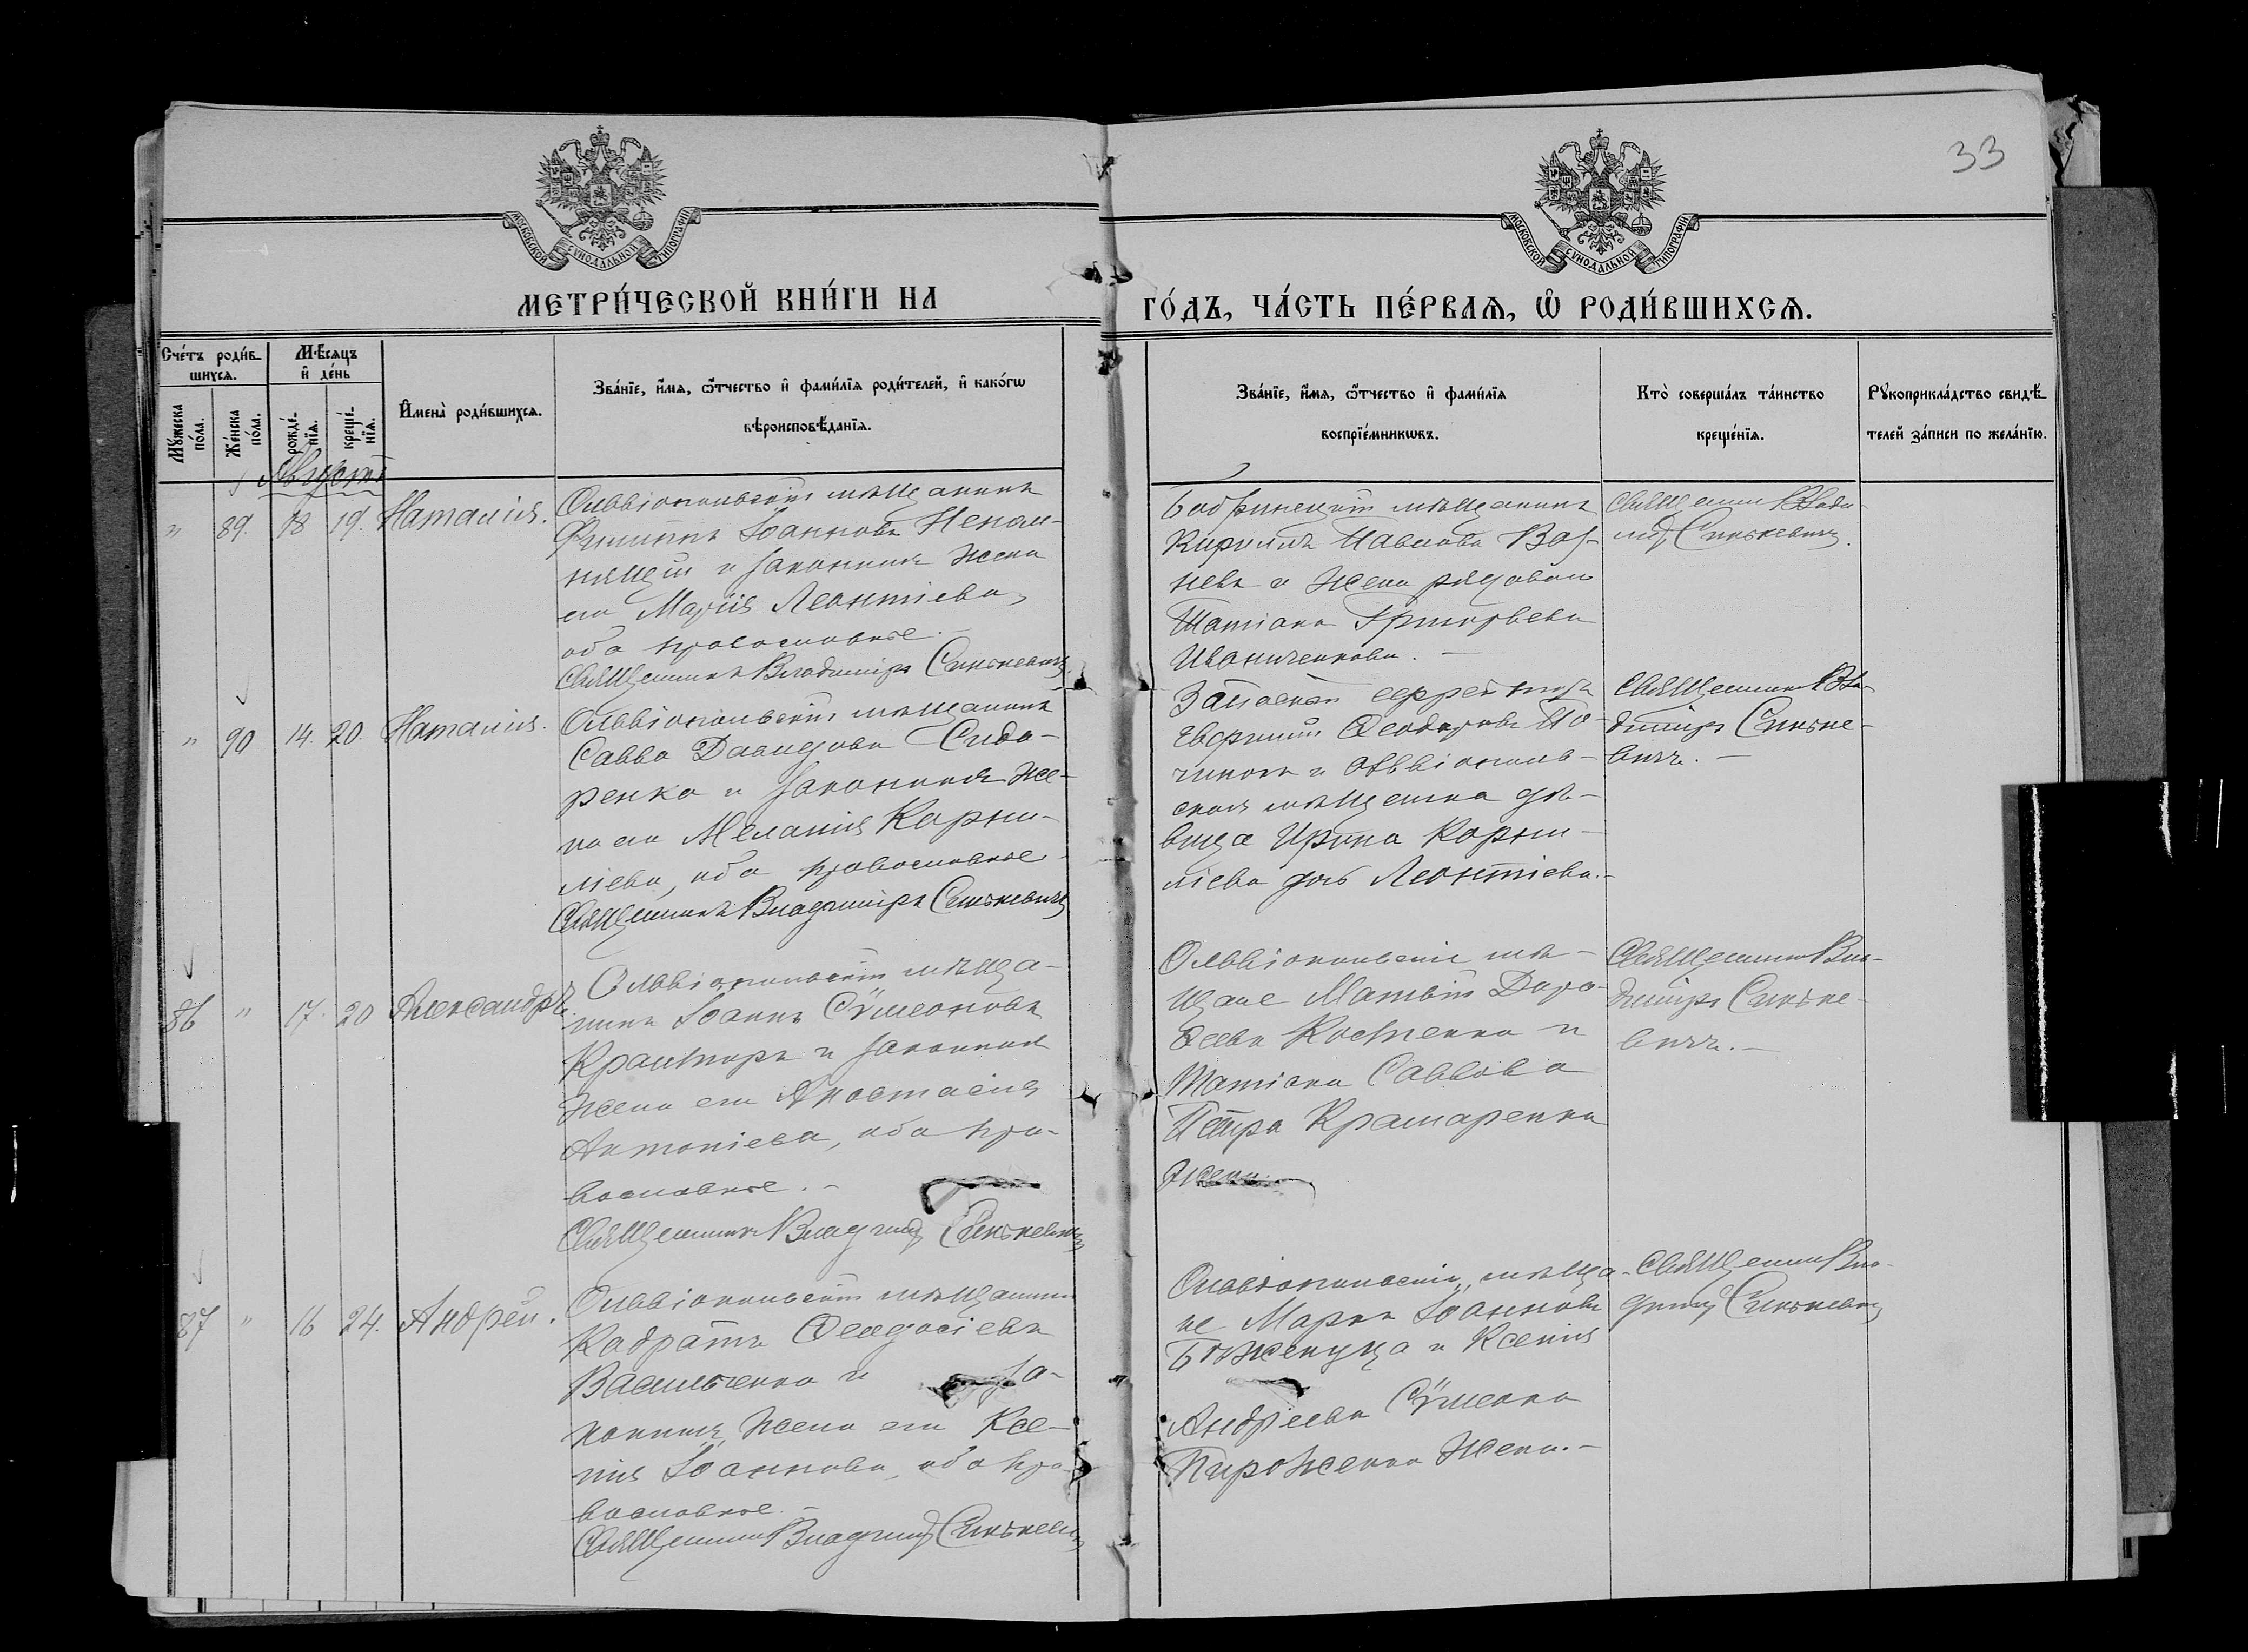 33
МОСКОВСКОЙ СУНОДАЛЬНОЙ ТИПОГРАФІИ
МОСКОВСКОЙ СУНОДАЛЬНОЙ ТИПОГРАФІИ
МЕТРИ́ЧЕСКОЙ КНИ́ГИ НА
ГО́ДЪ, ЧА́СТЬ ПЕ́РВАѦ, Ѡ РОДИ́ВШИХСѦ.
Сче́тъ роди́в-
шихсѧ.
Мѣ́сѧцъ
и҆ де́нь
Му́жеска
по́ла.
Же́нска
по́ла.
рожде́-
нїѧ.
креще́-
нїѧ.
И҆мена̀ роди́вшихсѧ.
Зва́нїе, и҆́мѧ, ѻ҆́тчество и҆ фами́лїѧ роди́телей, и҆ како́гѡ
вѣроисповѣ́данїѧ.
Зва́нїе, и҆́мѧ, ѻ҆́тчество и҆ фами́лїѧ
воспрїе́мникѡвъ.
Кто̀ соверша́лъ та́инство
креще́нїѧ.
Рꙋкоприкла́дство свидѣ́-
телей за́писи по жела́нїю.
Августъ
" 89. 18 19. Наталія.
Ольвіопольскій мѣщанинъ
Филиппъ Іоанновъ Непом-
нящій и законная жена
его Марія Леонтіева,
оба православные.-
Священникъ Владиміръ Синькевичъ
Бобринецкій мѣщанинъ
Кириллъ Павловъ
и жена рядового
Татіана Григорьева
Иваниченкова. -
Священник Влади-
мір Синькевичъ.
" 90 14. 20. Наталія.
Ольвіопольскій мѣщанинъ
Савва Давидовъ Сидо-
ренко и законная же-
на его Меланія Корни-
ліева, оба православные
Священникъ Владиміръ Синькевичъ
Запасной ефрейторъ
Феодоровъ По-
и Ольвіополь-
ская мѣщанка дѣ-
вица Ирина Корни-
ліева Леонтіева.-
Священник Вла-
диміръ Синьке-
вичъ. -
86 " 17. 20 Александръ.
Ольвіопольскій мѣща-
нинъ Іоаннъ Сѵмеоновъ
и законная
жена его Анастасія
Антоніева, оба пра-
вославные. -
Священникъ Владимір Синькевичъ
Ольвіопольскіе мѣ-
щане Матвій Доро-
ѳеевъ Костенко и
Татіана Саввова
Петра Крамаренка
жена.
Священник Вла-
диміръ Синьке-
вичъ. -
87 " 16 24. Андрей.
Ольвіопольскій мѣщанинъ
Кодратъ Феодосіевъ
Васильченко и за-
конная жена его Ксе-
нія Іоаннова, оба пра-
вославные. -
Священник Владимір Синькевичъ
Ольвіопольскіе мѣща-
не Маркъ Іоанновъ
и Ксенія
Андреева Сѵмеона
Пироженка жена. -
Священник Вла-
димір Синькевичъ